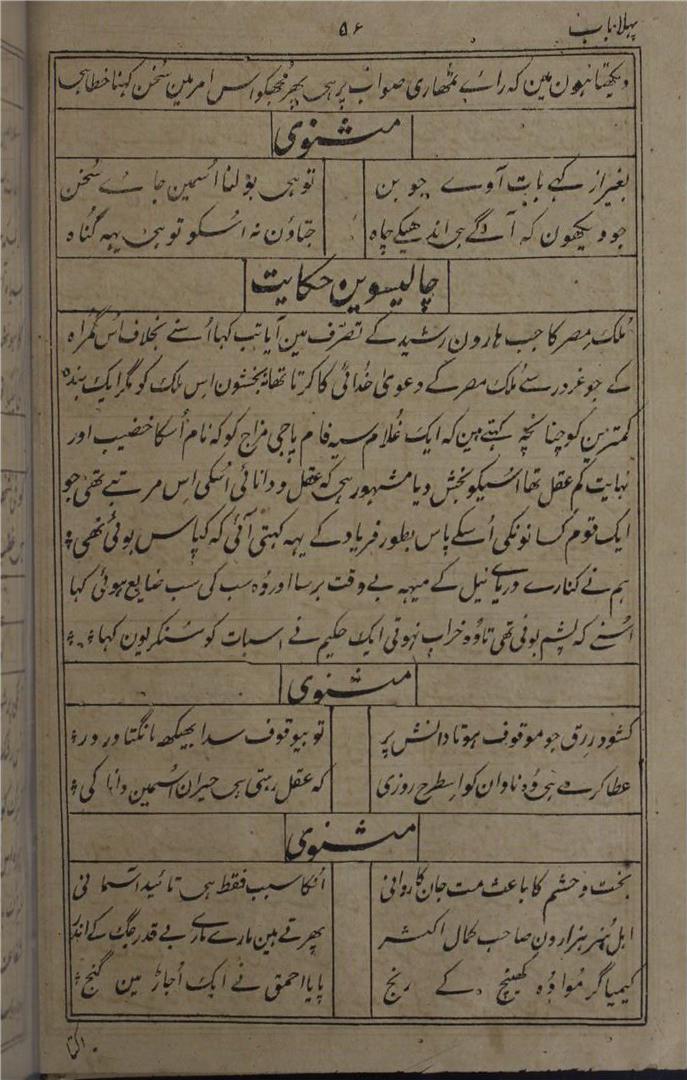 پہلا باب
۵۶
دیکھتا ہون مین کہ راے تمھاری صواب پر ہی پھر مجھکو اس امر مین سُخن کہنا خطا ہی
مثنوی
بغیر از کہے بات آوے جو بن توہی بولنا اُسمین جاے سُخن
جو دیکھون کہ آگے ہی اندھیکے چاہ جتاؤن نہ اُسکو تو ہی یہہ گُناہ
چالیسوین حکایت
مُلک مصر کا جب ہارون رشید کے تصرّف مین آیا تب کہا اُسنے بخلاف اُس گمراہ
کے جو غرور سے مُلک مصر کے دعویٰ خُدائی کا کرتا تھا نہ بخشون اس ملک کو مگر ایک بندہ
کمترین کو چنانچہ کہتے ہین کہ ایک غُلام سیہ فام پاجی مزاج کو کہ نام اُسکا خضیب اور
نہایت کم عقل تھا اُسیکو بخش دیا مشہور ہی کہ عقل و دانائی اُسکی اِس مرتبے تھی جو
ایک قوم کسانونکی اُسکے پاس بطور فریاد کے یہہ کہتی آئی کہ کپاس بوئی تھی
ہم نے کنارے دریاے نیل کے میہہ بے وقت برسا اور وُہ سب کی سب ضایع ہوئی کہا
اُسنے کہ پشم بوئی تھی تا وُہ خراب نہوتی ایک حکیم نے اسبات کو سُنکر یون کہا
مثنوی
کشود رزق جو موقوف ہوتا دانش پر تو بیوقوف سدا بھیکھ مانگتا در در
عطا کرے ہی وُہ نادان کو اِسطرح روزی کہ عقل رہتی ہی حیران اُسمین دانا کی
مثنوی
بخت و حشم کا باعث مت جان کاروانی اُنکا سبب فقط ہی تائید آسمانی
اہل ہُنر ہزارون صاحب کمال اکثر پھرتے ہین مارے مارے بے قدر جگ کے اندر
کیمیاگر مُوا وُہ کھینچ کے رنج پایا احمق نے ایک اُجاڑ مین گنج